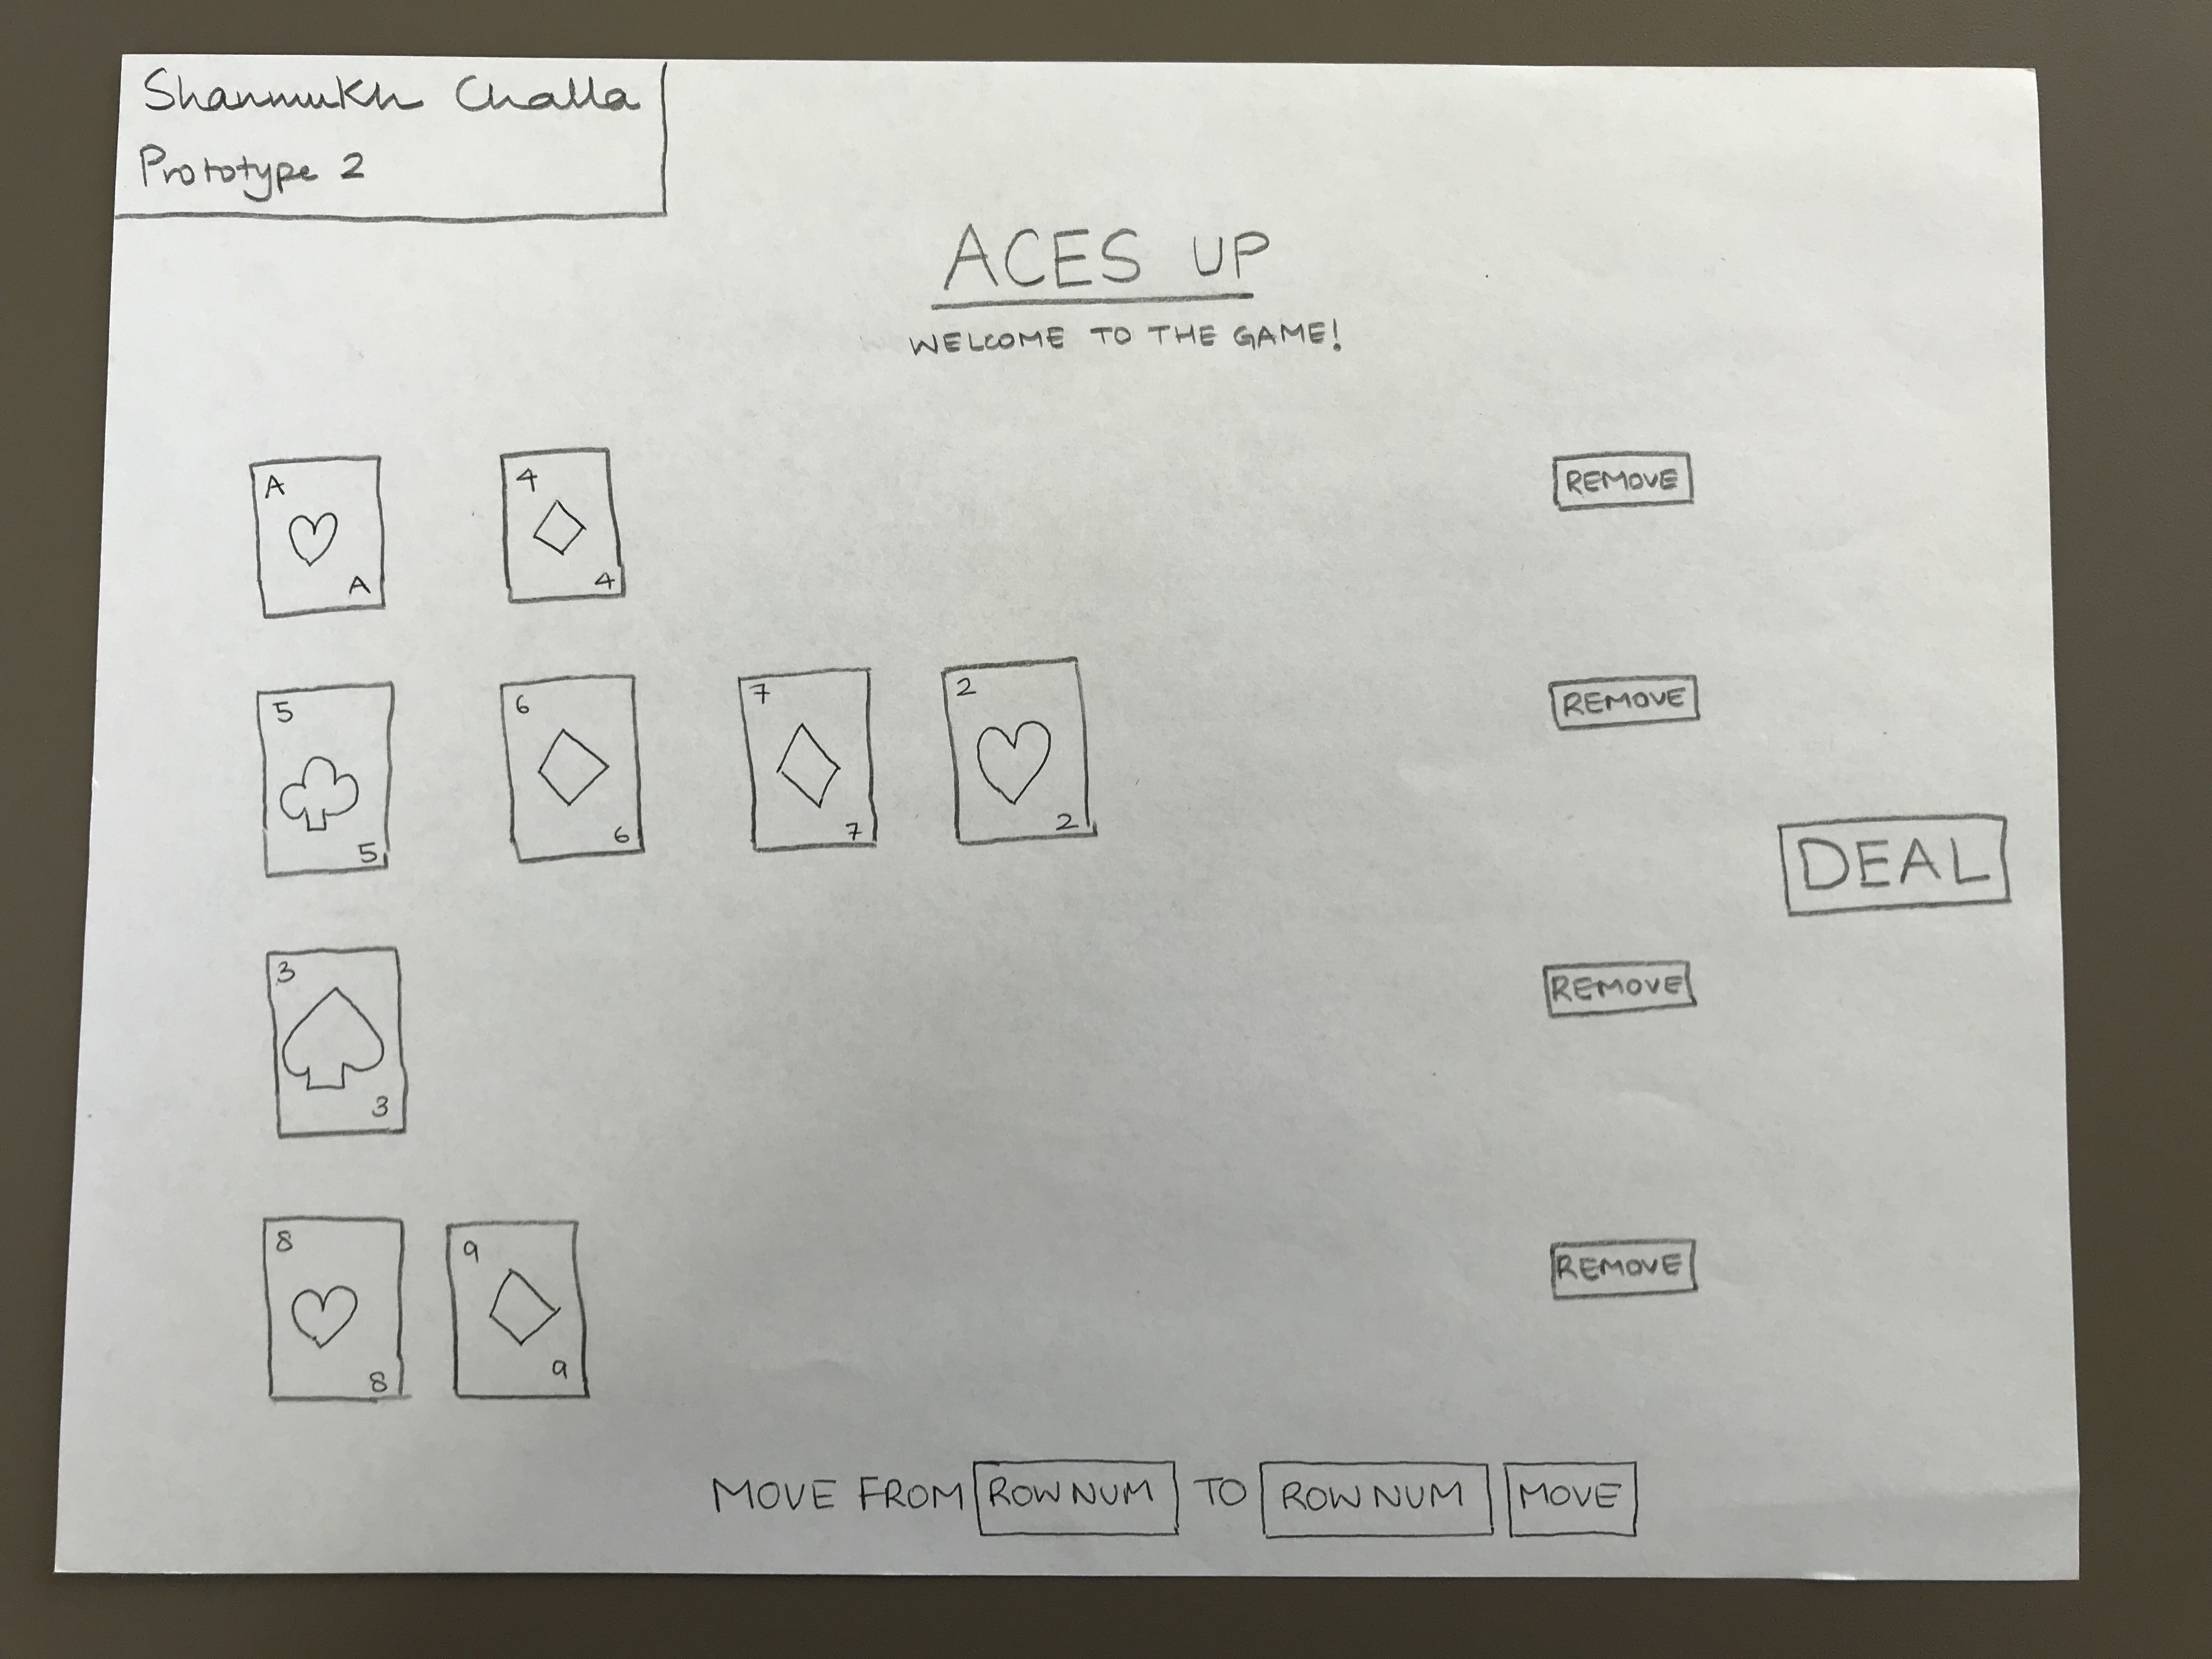 Shanmukh Challa
Prototype 2
ACES UP
WELCOME TO THE GAME!
A 4
A 4
REMOVE
5 6 7 2
5 6 7 2
REMOVE
DEAL
3
3
REMOVE
8 9
8 9
REMOVE
MOVE FROM ROW NUM TO ROW NUM MOVE